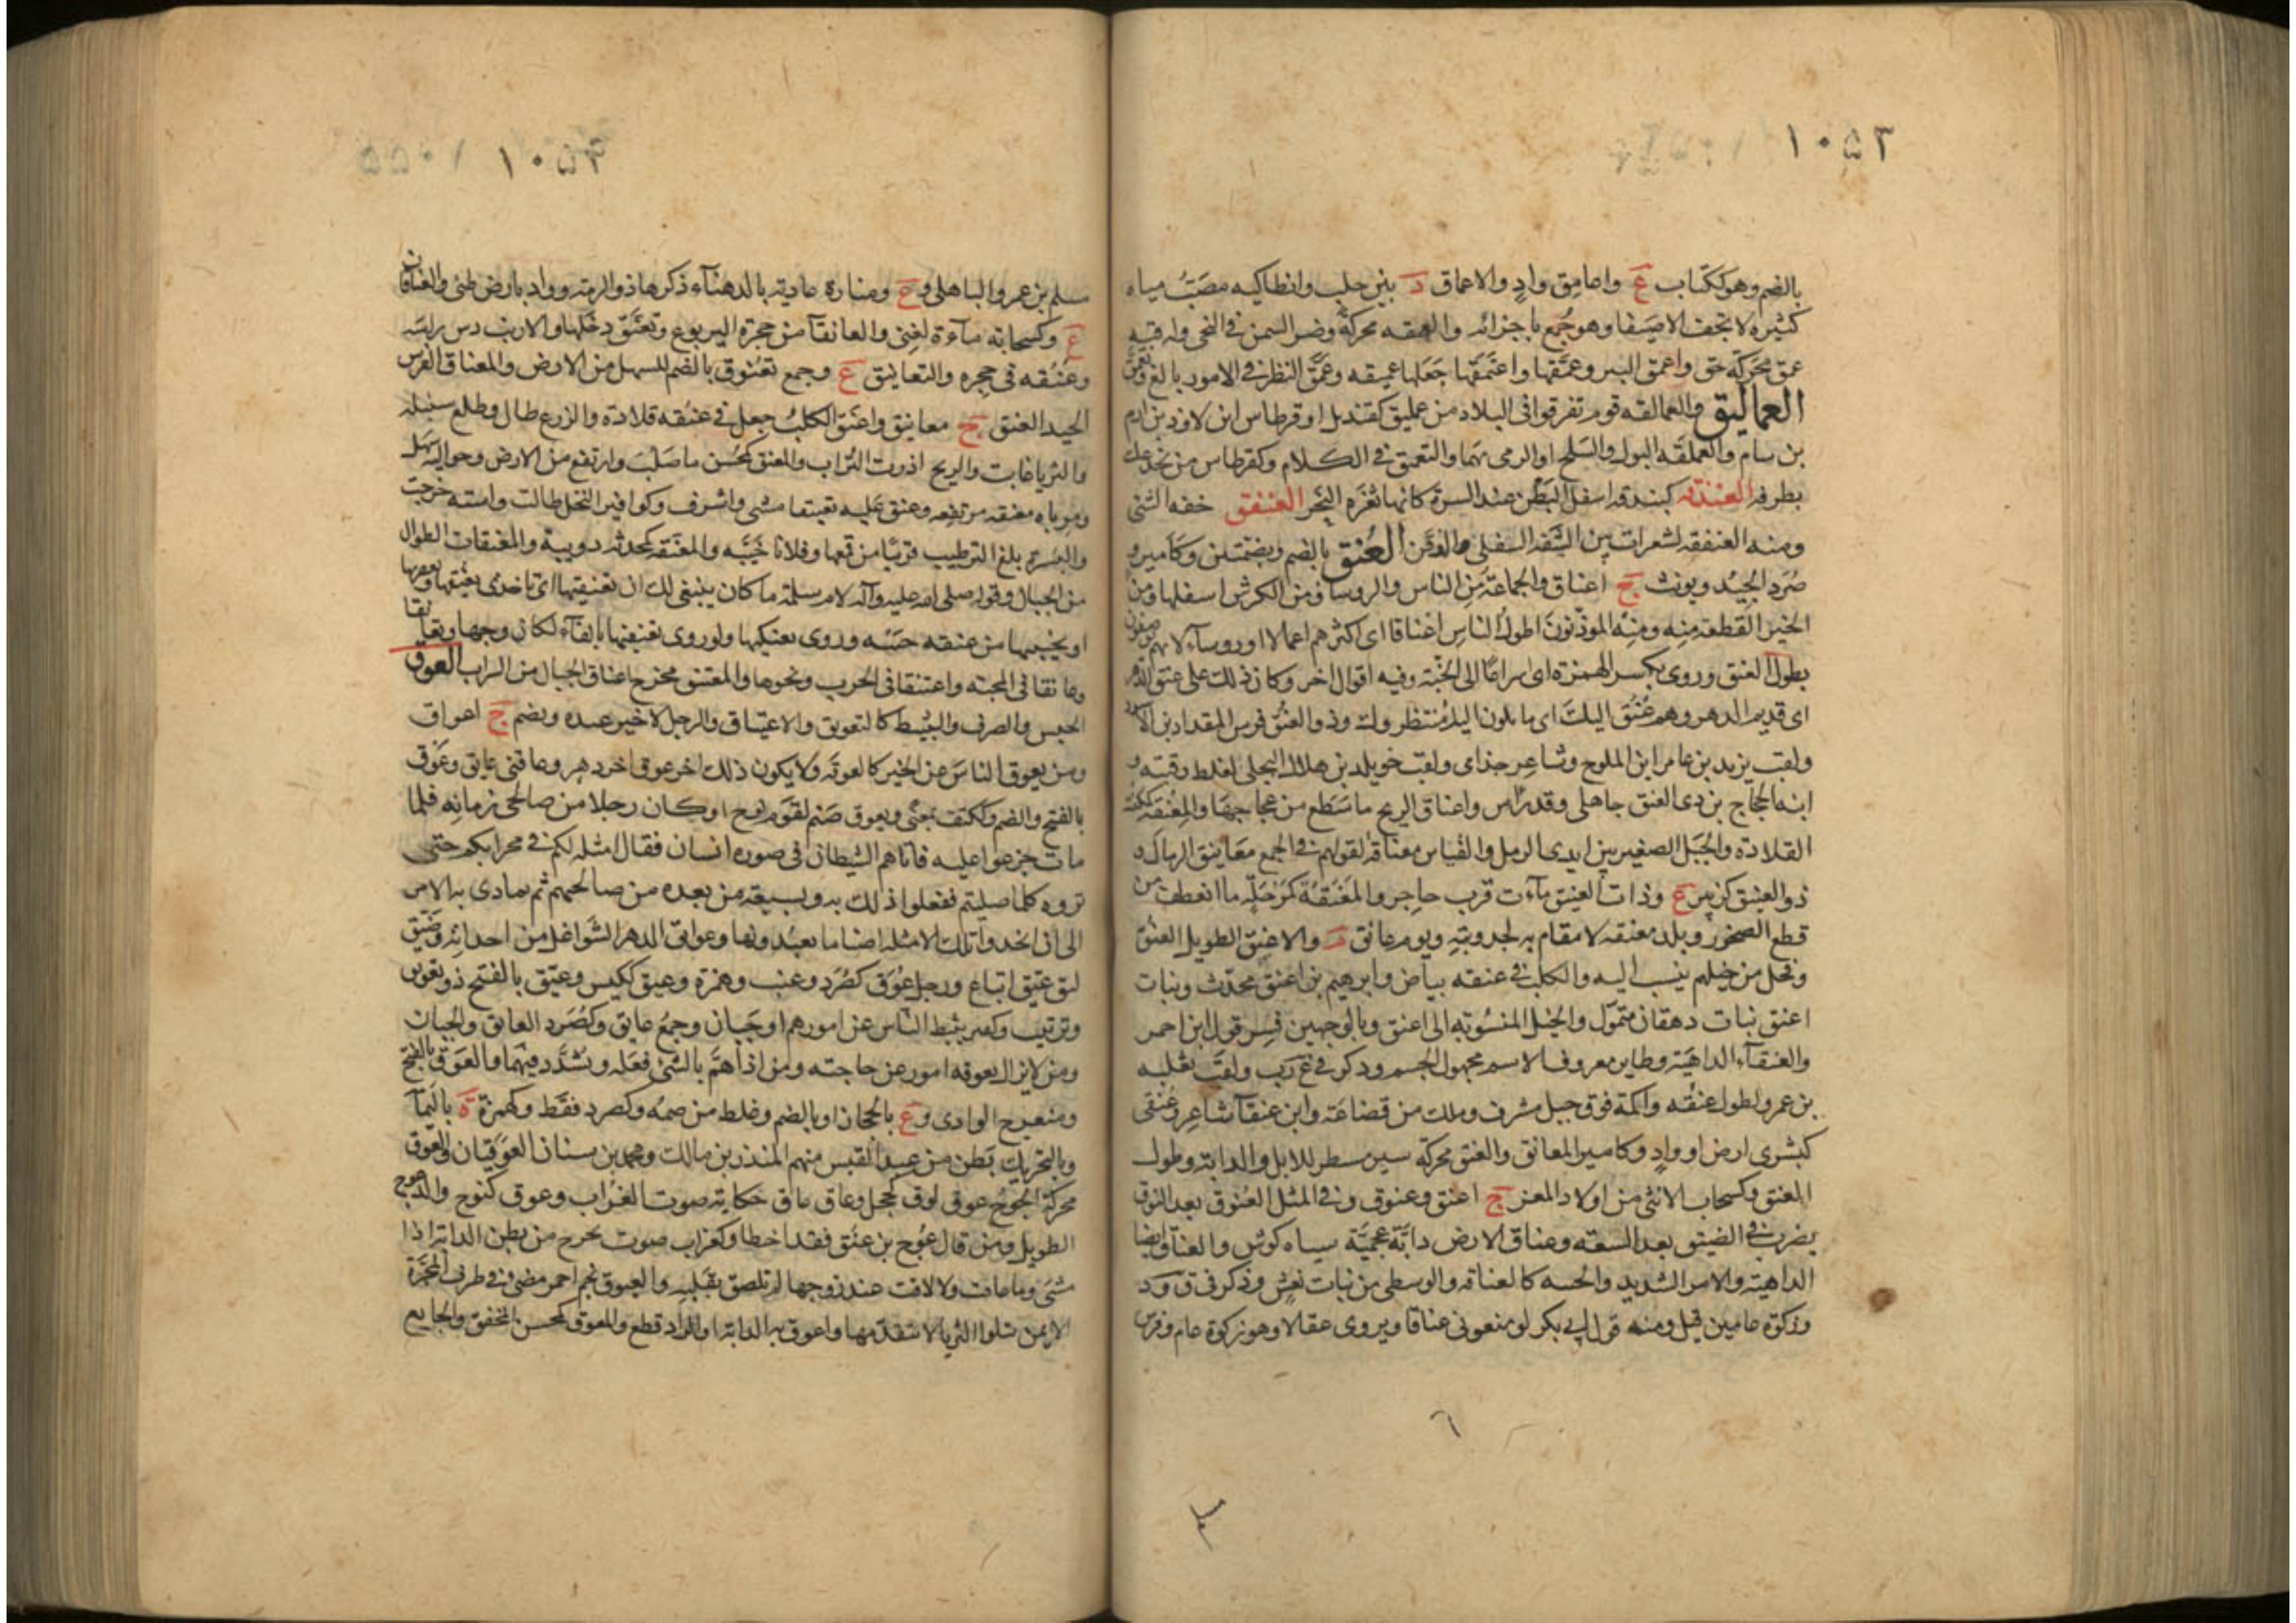 ١٠٥٣
بالضم وهو ككتاب ع واعامق واد والاعماق د بين حلب وانطاكيه مصب مياه
كثيره لا تجف الا صيفا وهو جمع باجزائه والعمقه محركة وضر السمن في النحي وله فيه
عمق محركة حق واعمق البير وعمقها واعتمقها جعلها عميقه وعمق النظر في الامور بالغ وتعمق
العماليق والعمالقه قوم تفرقوا في البلاد من عمليق كقنديل او قرطاس ابن لاوذ بن ارم
بن سام والعملقه البول والسلح او الرمي بهما والتعمق في الكلام وكقرطاس من يخدعك
بطرفه العندقه كبندقه اسفل البطن عند السرة كانها ثغرة النحر العنفق خفه الشئ
ومنه العنفقه لشعرات بين الشفه السفلى والذقن العنق بالضم وبضمتين وكامير و
صرد الجيد ويونث ج اعناق والجماعة من الناس والروسا ومن الكرش اسفلها ومن
الخبز القطعة منه ومنه الموذنون اطول الناس اعناقا اى اكثرهم اعمالا او روساء لانهم يوصفون
بطول العنق وروى بكسر الهمزة اى اسراعا الى الجنة وفيه اقوال اخر وكان ذلك على عنق الدهر
اى قديم الدهر وهم عنق اليك اى مايلون اليك منتظروك وذو العنق فرس المقداد بن الاسود
ولقب يزيد بن عامر ابن الملوح وشاعر جذامى ولقب خويلد بن هلال البجلى لغلظ رقبته و
ابنه الحجاج بن ذى العنق جاهلى وقد راس واعناق الريح ما سطع من عجاجها والمعنقه كمكنسه
القلادة والجبل الصغير بين ايدى الرمل والقياس معناقه لقولهم في الجمع معانيق الرمال
ذو العنيق كزبير ع وذات العنيق ماءت قرب حاجر والمعنقة كمرحلة ما انعطف من
قطع الصخور وبلد معنقه لا مقام به لجدوبته ويوم عانق م والاعنق الطويل العنق
وفحل من خيلهم ينسب اليه والكلب في عنقه بياض وابرهيم بن اعنق محدث وبنات
اعنق بنات دهقان متمول والخيل المنسوبة الى اعنق وبالوجهين فسر قول ابن احمر
والعنقآء الداهية وطاير معروف الاسم مجهول الجسم وذكر في غ ر ب ولقب ثعلبه
بن عمرو لطول عنقه واكمة فوق جبل مشرف وملك من قضاعة وابن عنقآء شاعر وعنقى
كبشرى ارض او واد وكامير المعانق والعنق محركة سير مسطر للابل والدابة وطول
العنق وكسحاب الانثى من اولاد المعز ج اعنق وعنوق وفي المثل العنوق بعد النوق
يضرب في الضيق بعد السعة وعناق الارض دابة عجمية سياه كوش والعناق ايضا
الداهية والامر الشديد والخيبه كالعناقه والوسطى من بنات نعش وذكر في ق و د
وزكوة عامين قيل ومنه قول ابى بكر لو منعونى عناقا ويروى عقالا وهو زكوة عام وفرس
٦
مسلم
١٠٥٤ ١٠٥٥
مسلم بن عمرو الباهلى و ع ومنارة عادية بالدهنآء ذكرها ذو الرمة وواد بارض طئ والعناقان
ع وكسحابة مآءة لغنى والعانقآ من حجرة اليربوع وتعنق دخلها والارنب دس راسه
وعنقه في حجره والتعانيق ع وجمع تعنوق بالضم للسهل من الارض والمعناق الفرس
الجيد العنق ج معانيق واعنق الكلب جعل في عنقه قلادة والزرع طال وطلع سنبله
والثريا غابت والريح اذرت التراب والمعنق كمحسن ما صلب وارتفع من الارض وحواليه سهل
ومرباه معنقه مرتفعه وعنق عليه تعنيقا مشى واشرف وكوافير النخل طالت واسته خرجت
والبسرة بلغ الترطيب قريبا من قمعها وفلانا خيبه والمعنقه كمحدثه دويبة والمعنقات الطوال
من الجبال وقوله صلى الله عليه وآله لام سلمة ما كان ينبغى لك ان تعنقيها اى تاخذى بعنقها وتعصرها
او تخيبيها من عنقه خيبه وروى تعنكيها ولو روى تعنفيها بالفآء لكان وجها وتعانقا
وعانقا في المحبة واعتنقا في الحرب ونحوها والمعتنق مخرج اعناق الجبال من السراب العوق
الحبس والصرف والتثبيط كالتعويق والاعتياق والرجل لا خير عنده ويضم ج اعواق
ومن يعوق الناس عن الخير كالعوقه ولا يكون ذلك اخر عوق اخر دهر وعاقنى عايق وعوق
بالفتح والضم وككتف بمعنى ويعوق صنم لقوم نوح او كان رجلا من صالحى زمانه فلما
مات جزعوا عليه فاتاهم الشيطان في صوره انسان فقال امثله لكم في محرابكم حتى
تروه كلما صليتم ففعلوا ذلك به وبسبعة من بعده من صالحيهم ثم تمادى به الامر
الى ان اتخذوا تلك الامثله اصناما يعبدونها وعوائق الدهر الشواغل من احداثه وضيق
ليق عيق اتباع ورجل عوق كصرد وعنب وهمزة وعيق ككيس وعيق بالفتح ذو تعويق
وترتيب وكصرد يثبط الناس عن امورهم او جبان وجمع عايق وكصرد العائق والجبان
ومن لا يزال يعوقه امور عن حاجته ومن اذا هم بالشئ فعله وتشدد فيهما والعوق بالفتح
ومنعرج الوادى و ع بالحجاز او بالضم وغلط من ضمه وكصرد فقط وكهمزة ة باليمآ
وبالتحريك بطن من عبد القيس منهم المنذر بن مالك ومحمد بن سنان العوقيان والعوق
محركة الجوع عوق لوق كخجل وعاق عاق حكاية صوت الغراب وعوق كنوح والد عوج
الطويل ومن قال عوج بن عنق فقد اخطا وكغراب صوت يخرج من بطن الدابة اذا
مشى وما عاقت ولا لاقت عند زوجها لم تلصق بقلبه والعيوق نجم احمر مضئ في طرف المجرة
الايمن يتلوا الثريا لا يتقدمها واعوق به الدابة او الزاد قطع والمعوق كمحسن المخفق والجايع